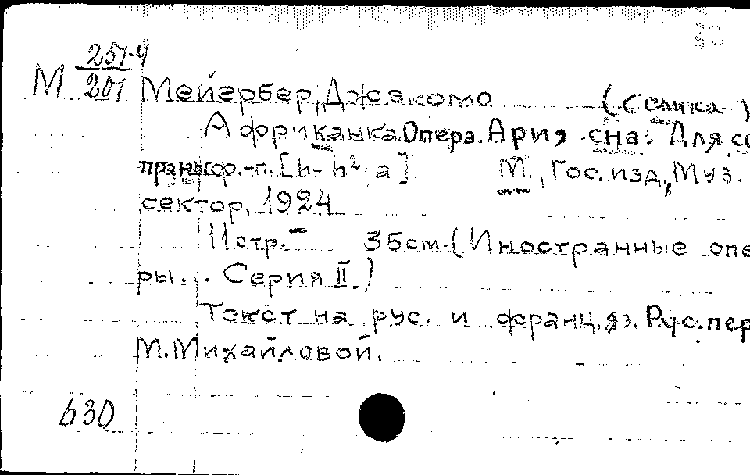 М 257-4
201 Мейербер, Джякомо (Селика)
Африканка. Опера. Ария сна: Для со
прано с ф.-п. [h-h² a] М., Гос. изд., Муз.
сектор, 1924
11стр. 35см. (Иностранные опе
ры... Серия II.)
Текст на рус. и франц. яз. Рус. пер
М. Михайловой.
630